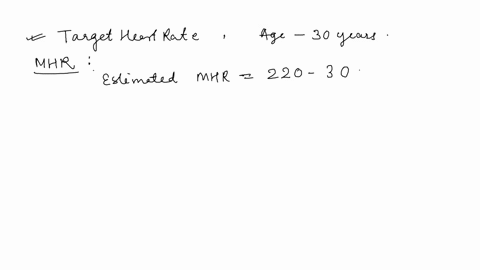 Target Heart Rate, Age - 30 years.
MHR :
Estimated MHR = 220 - 30